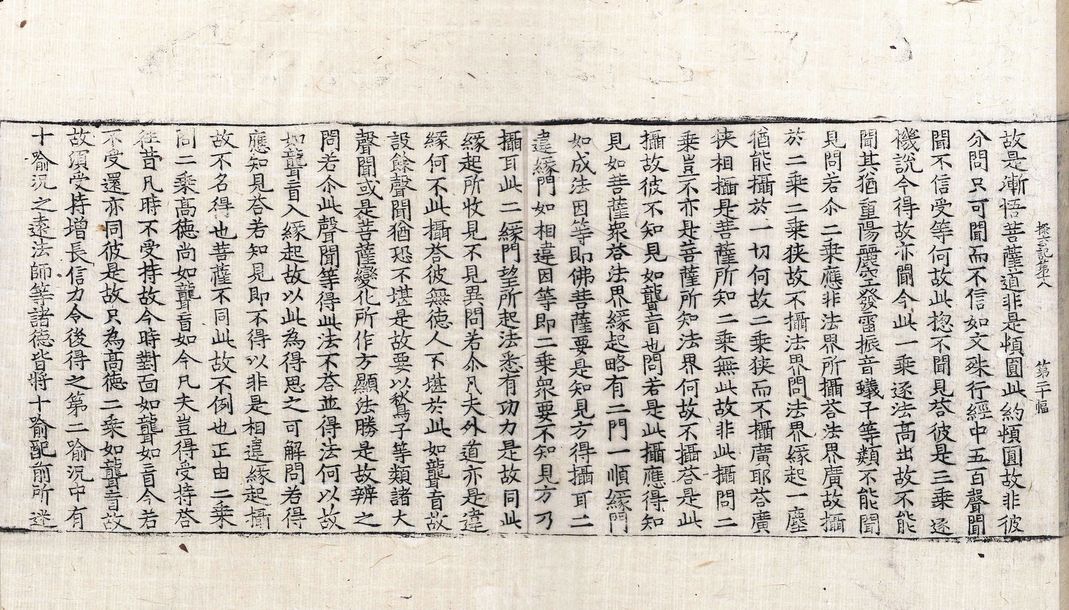 探玄記第八 第二十幅
故是漸悟菩薩道非是頓圓此約頓圓故非彼
分問只可聞而不信如文殊行經中五百聲聞
聞不信受等何故此揔不聞見荅彼是三乘逐
機說令得故亦聞今此一乘逐法高出故不能
聞其猶重陽麗空發雷振音蟻子等類不能聞
見問若尒二乘應非法界所攝荅法界廣故攝
於二乘二乘狹故不攝法界問法界緣起一塵
猶能攝於一切何故二乘狹而不攝廣耶荅廣
狹相攝是菩薩所知二乘無此故非此攝問二
乘豈不亦是菩薩所知法界何故不攝荅是此
攝故彼不知見如聾盲也問若是此攝應得知
見如菩薩衆荅法界緣起略有二門一順緣門
如成法因等即佛菩薩要是知見方得攝耳二
違緣門如相違因等即二乘衆要不知見方乃
攝耳此二緣門望所起法悉有功力是故同此
緣起所收見不見異問若尒凡夫外道亦是違
緣何不此攝荅彼無德人不堪於此如聾盲故
設餘聲聞猶恐不堪是故要以鶖子等類諸大
聲聞或是菩薩變化所作方顯法勝是故辨之
問若尒此聲聞等得此法不荅並得法何以故
如聾盲入緣起故以此為得思之可解問若得
應知見荅若知見即不得以非是相違緣起攝
故不名得也菩薩不同此故不例也正由二乘
問二乘高德尚如聾盲如今凡夫豈得受持荅
往昔凡時不受持故今時對面如聾如盲今若
不受還亦同彼是故只為高德二乘如聾盲故
故須受持增長信力令後得之第二喻況中有
十喻況之遠法師等諸德皆將十喻配前所迷